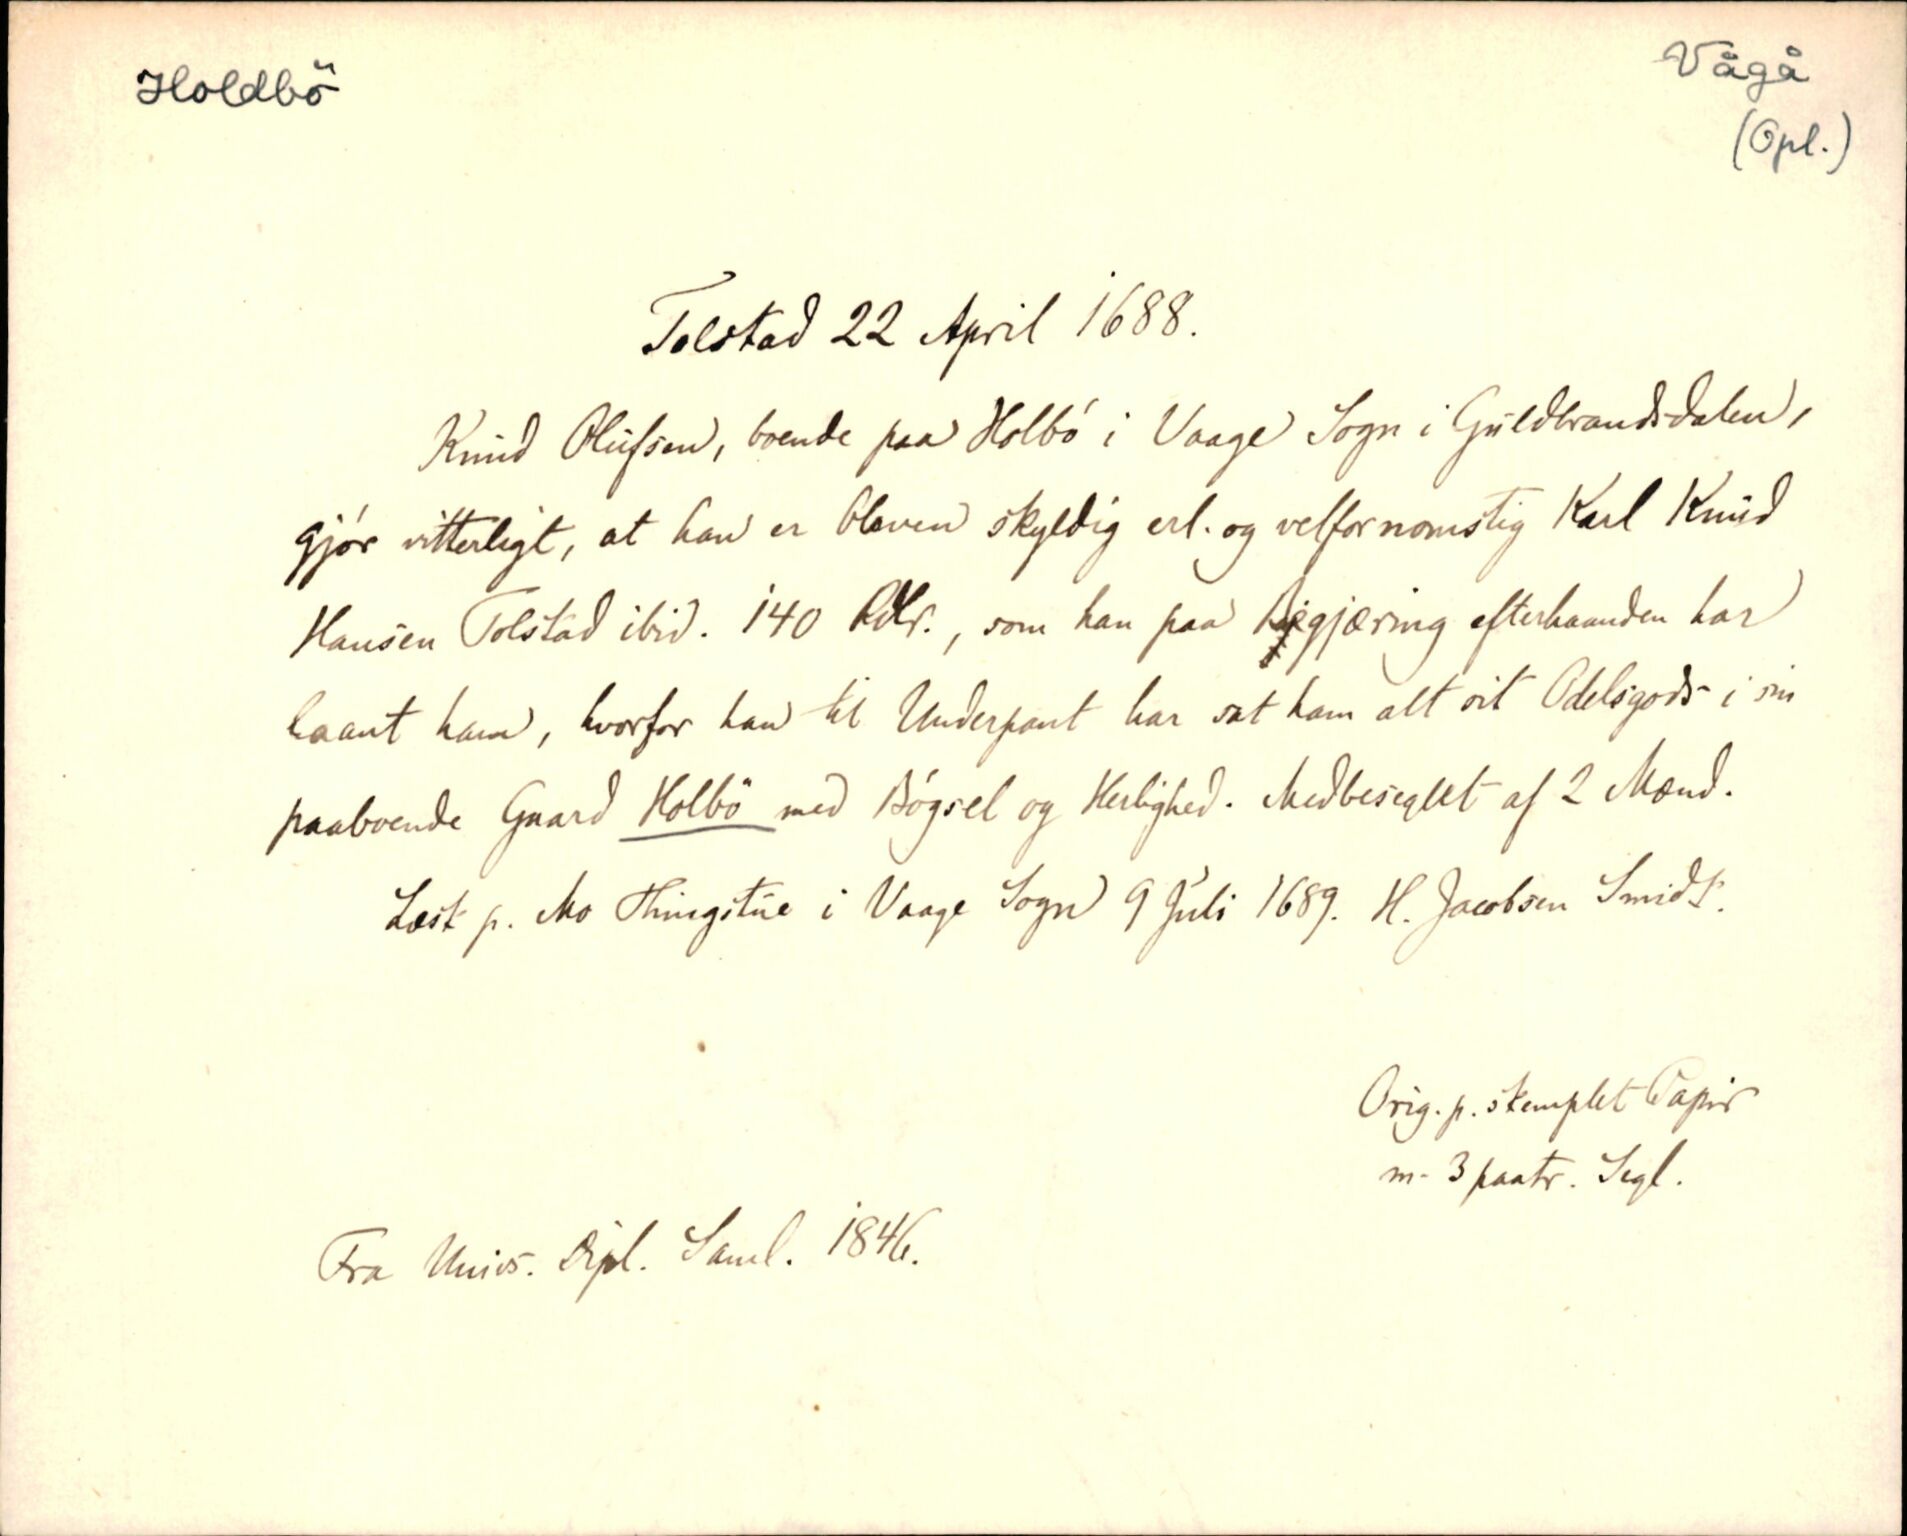 Holdbö
Vågå
(Opl.)
Tolstad 22 April 1688.
Knud Olufsen, boende paa Holbö i Vaage Sogn i Guldbrandsdalen,
gjör vitterligt, at han er bleven skyldig erl. og velfornomstig Karl Knud
Hansen Tolstad ibid. 140 Rdlr., som han paa Begjæring efterhaanden har
laant ham, hvorfor han til Underpant har sat ham alt sit Odelsgods i sin
paaboende Gaard Holbö med Bögsel og Herlighed. Medbeseglet af 2 Mænd.
Læst p. Mo Thingstue i Vaage Sogn 9 Juli 1689. H. Jacobsen Smidt.
Orig. p. stemplet Papir
m. 3 paatr. Segl.
Fra Univs. Dipl. Saml. 1846.